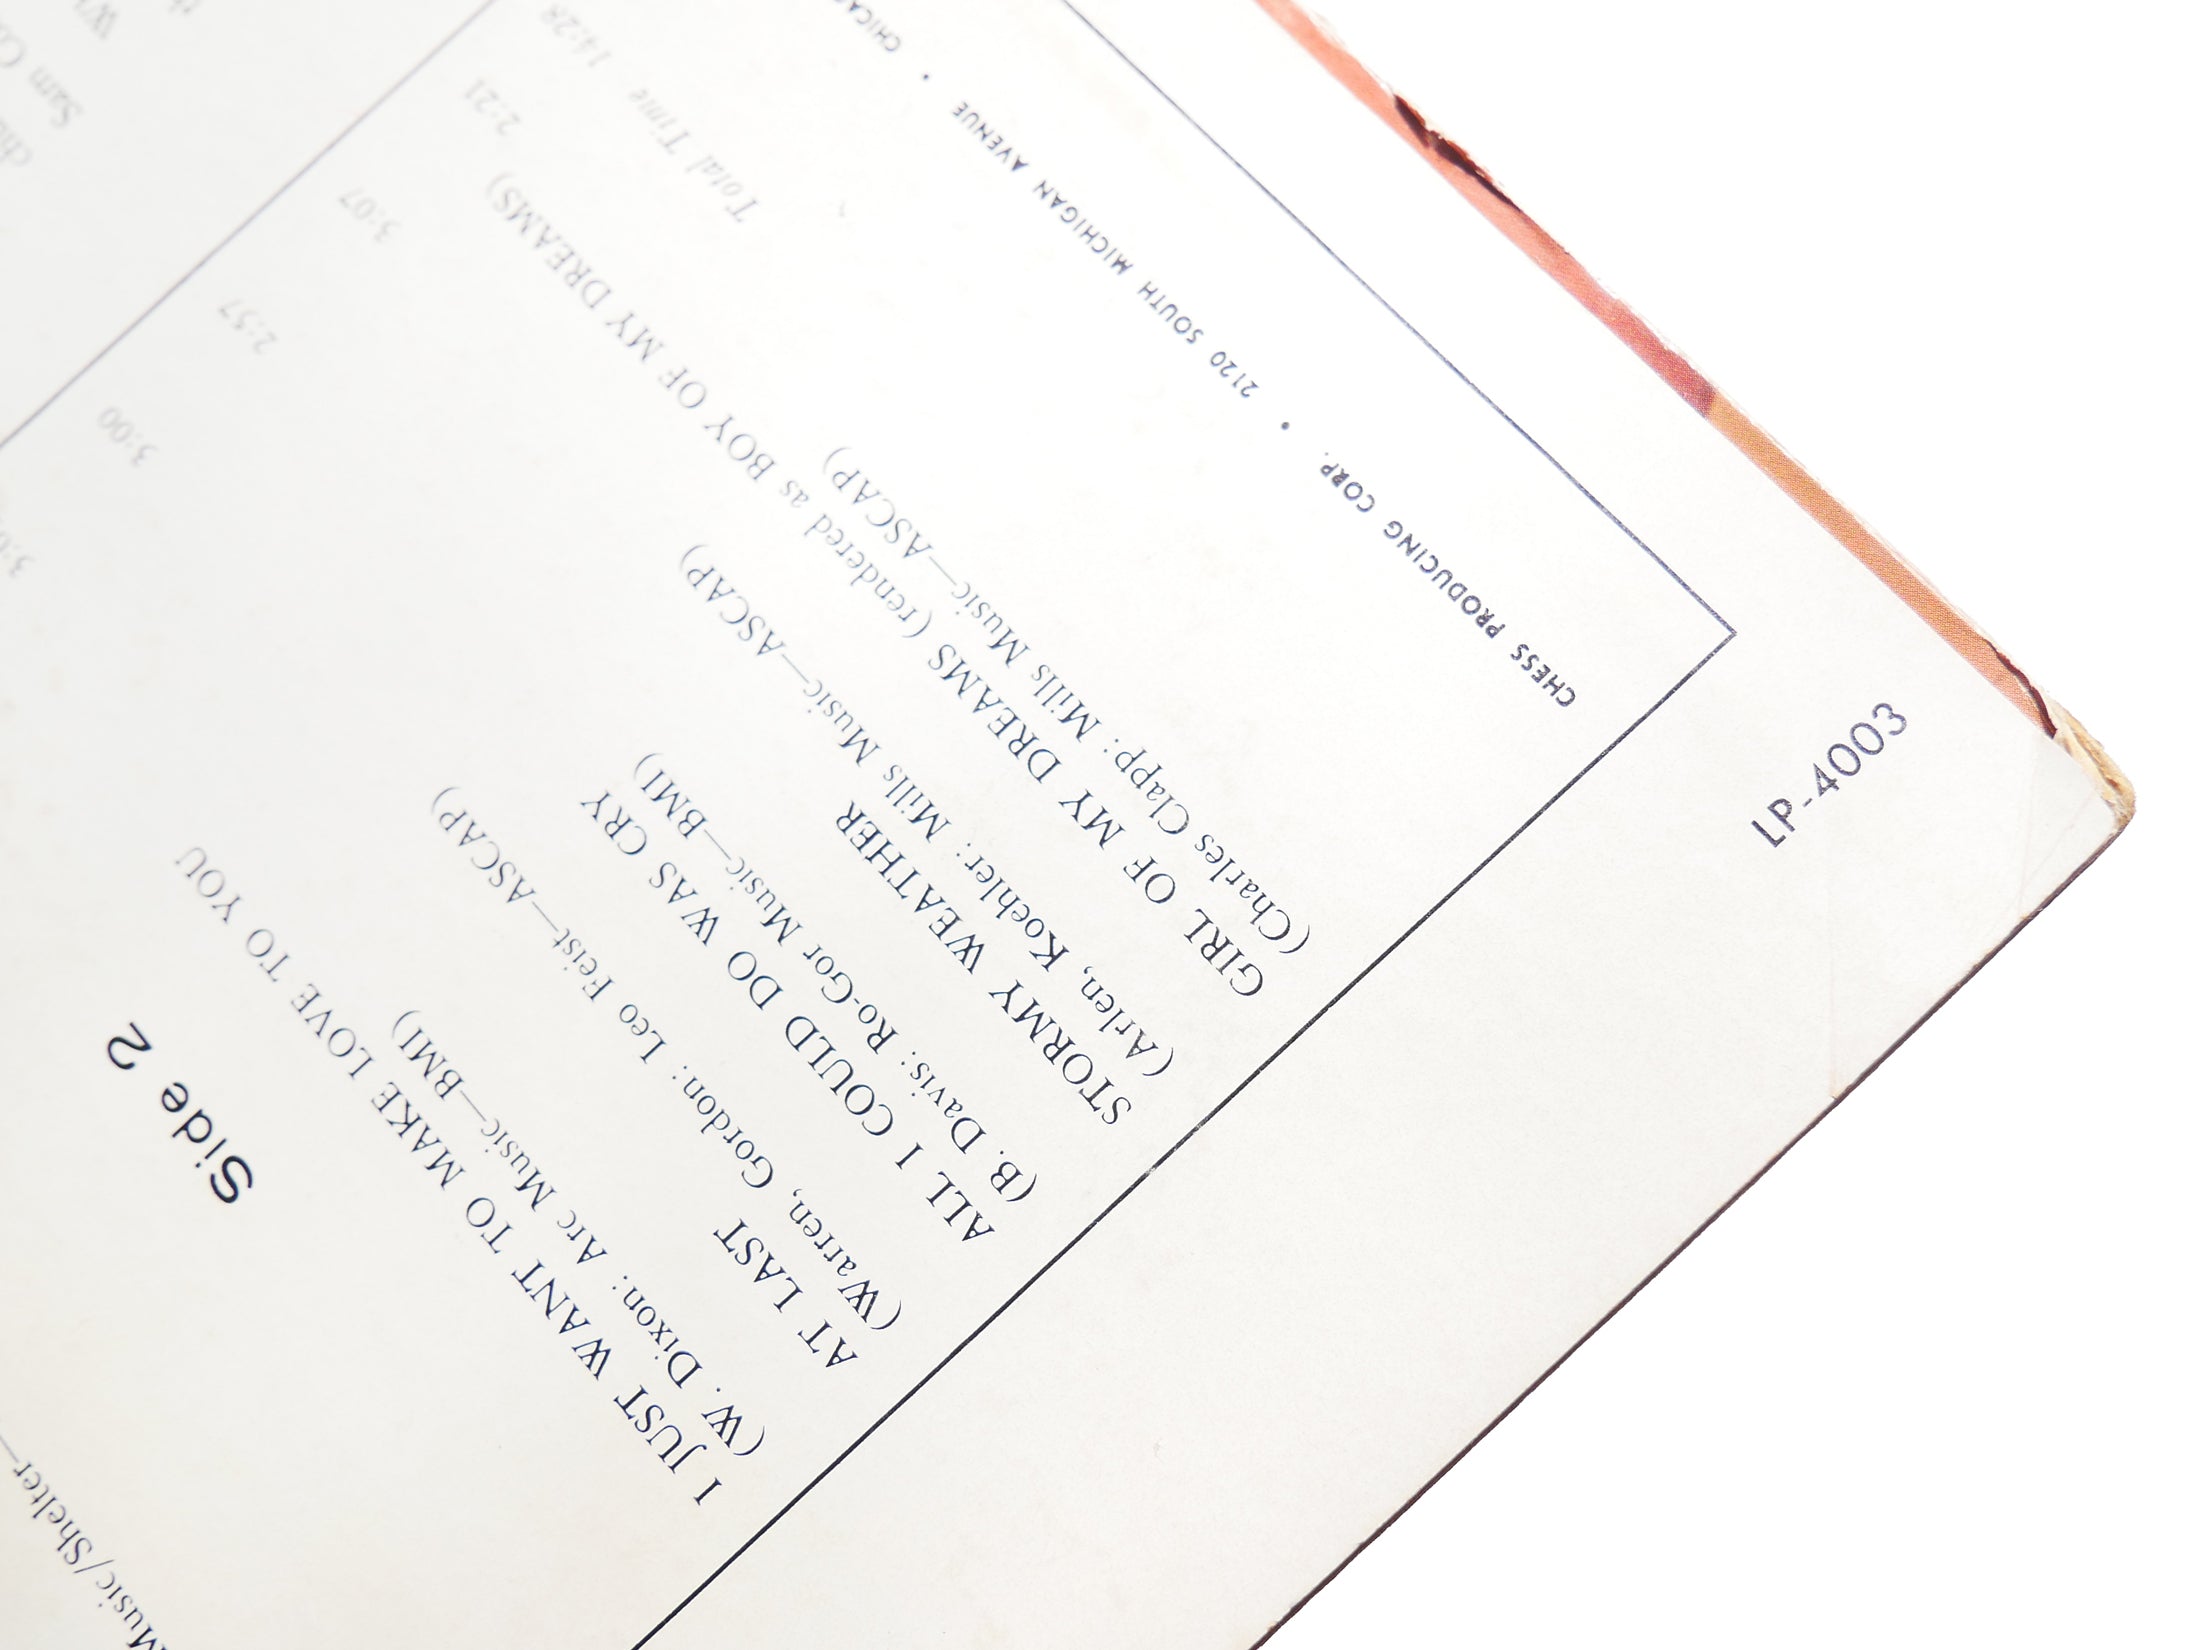 Music/Shelter—
Side 2
I JUST WANT TO MAKE LOVE TO YOU
(W. Dixon: Arc Music—BMI)
AT LAST 3:00
(Warren, Gordon: Leo Feist—ASCAP)
ALL I COULD DO WAS CRY 2:57
(B. Davis: Ro-Gor Music—BMI)
STORMY WEATHER 3:07
(Arlen, Koehler: Mills Music—ASCAP)
GIRL OF MY DREAMS (rendered as BOY OF MY DREAMS) 2:21
(Charles Clapp: Mills Music—ASCAP)
Total Time 14:28
CHESS PRODUCING CORP. • 2120 SOUTH MICHIGAN AVENUE •
Sam
LP-4003